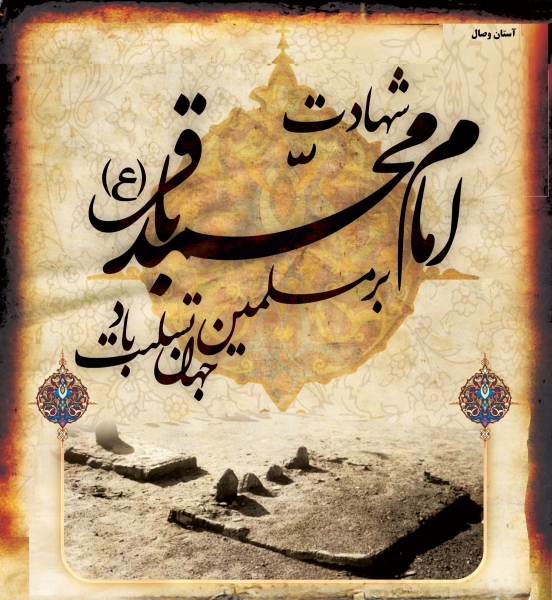 آستان وصال
شهادت
امام محمّد باقر (ع)
بر مسلمین
جهان تسلیت باد